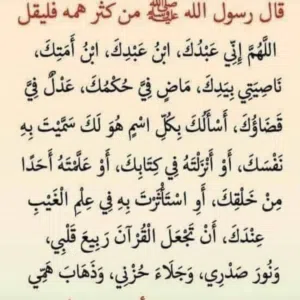 قال رسول الله ﷺ من كثر همه فليقل
اللَّهُمَّ إِنِّي عَبْدُكَ، ابْنُ عَبْدِكَ، ابْنُ أَمَتِكَ،
نَاصِيَتِي بِيَدِكَ، مَاضٍ فِيَّ حُكْمُكَ، عَدْلٌ فِيَّ
قَضَاؤُكَ، أَسْأَلُكَ بِكُلِّ اسْمٍ هُوَ لَكَ سَمَّيْتَ بِهِ
نَفْسَكَ، أَوْ أَنْزَلْتَهُ فِي كِتَابِكَ، أَوْ عَلَّمْتَهُ أَحَدًا
مِنْ خَلْقِكَ، أَوِ اسْتَأْثَرْتَ بِهِ فِي عِلْمِ الْغَيْبِ
عِنْدَكَ، أَنْ تَجْعَلَ الْقُرْآنَ رَبِيعَ قَلْبِي،
وَنُورَ صَدْرِي، وَجَلَاءَ حُزْنِي، وَذَهَابَ هَمِّي